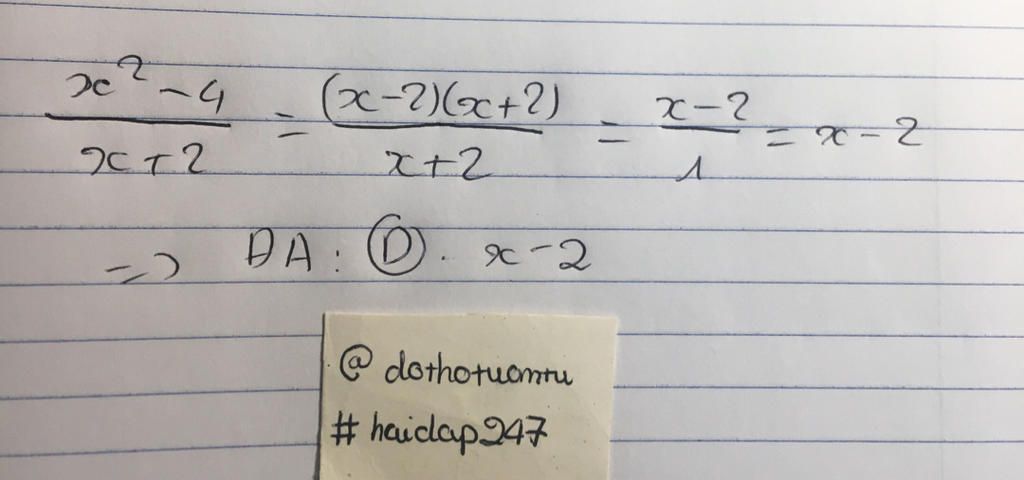 x² - 4 / x + 2 = (x-2)(x+2) / x+2 = x-2 / 1 = x - 2
=> ĐA: D. x - 2
@ dothotuantu
# hoidap247